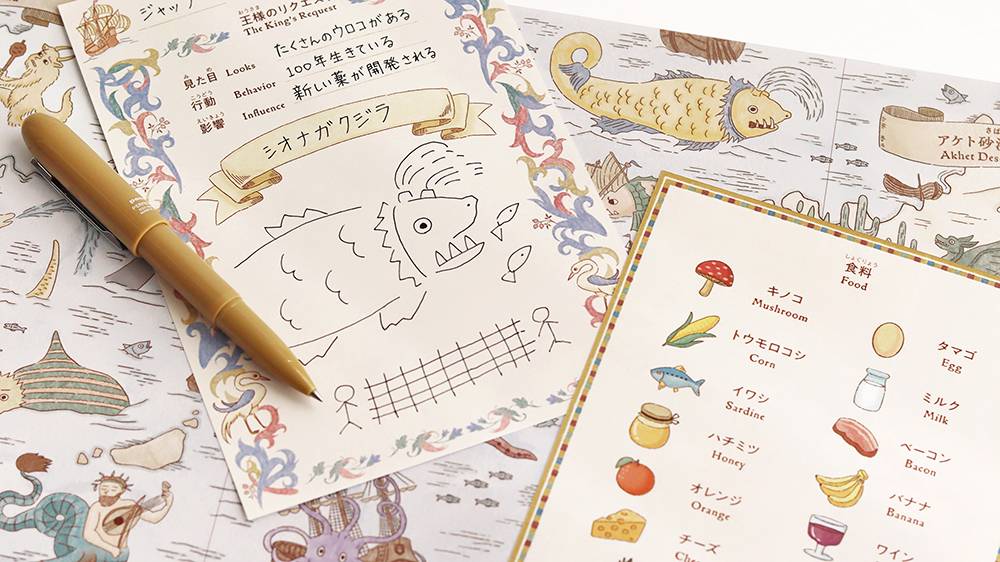 ジャック
おうさま
王様のリクエスト
The King's Request
み め
見た目 Looks たくさんのウロコがある
こうどう
行動 Behavior 100年生きている
えいきょう
影響 Influence 新しい薬が開発される
シオナガクジラ
アケト砂漠
Akhet Des
しょくりょう
食料
Food
キノコ
Mushroom
トウモロコシ
Corn
イワシ
Sardine
ハチミツ
Honey
オレンジ
Orange
チーズ
タマゴ
Egg
ミルク
Milk
ベーコン
Bacon
バナナ
Banana
ワイン